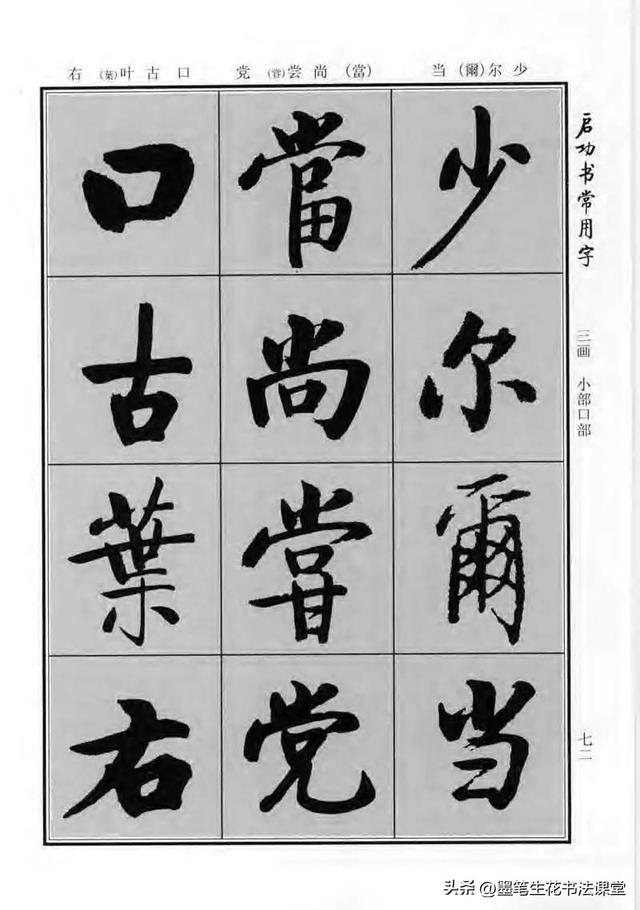 启功书常用字
三画 小部口部
七二
少尔(爾)当
(當)尚尝(嘗)党
口古叶(葉)右
少尔爾当
當尚嘗党
口古葉右
头条 @墨笔生花书法课堂